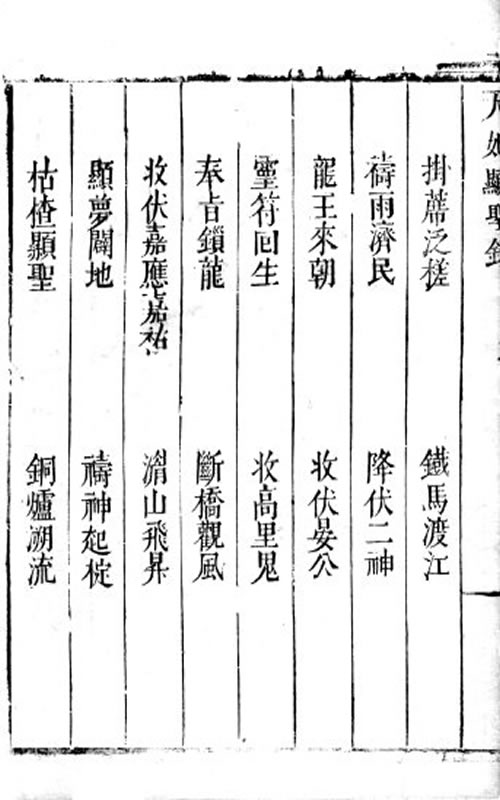 天妃顯聖錄
掛蓆泛槎
鐵馬渡江
禱雨濟民
降伏二神
龍王來朝
收伏晏公
靈符回生
收高里鬼
奉旨鎖龍
斷橋觀風
收伏嘉應嘉祐
湄山飛昇
顯夢闢地
禱神起椗
枯楂顯聖
銅爐溯流